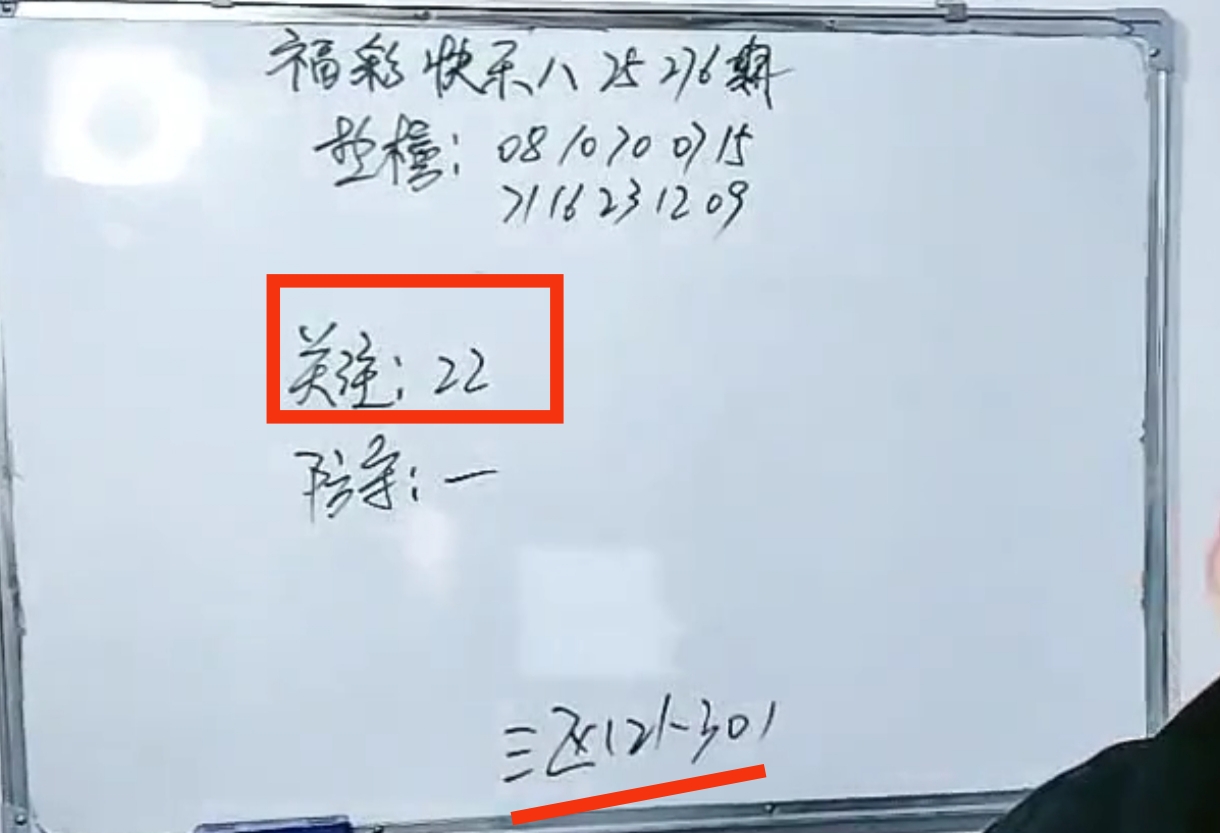 福彩快乐八25276期
垫档：08 10 20 07 15
21 16 23 12 09
关注：22
防守：一
三区(21-30)